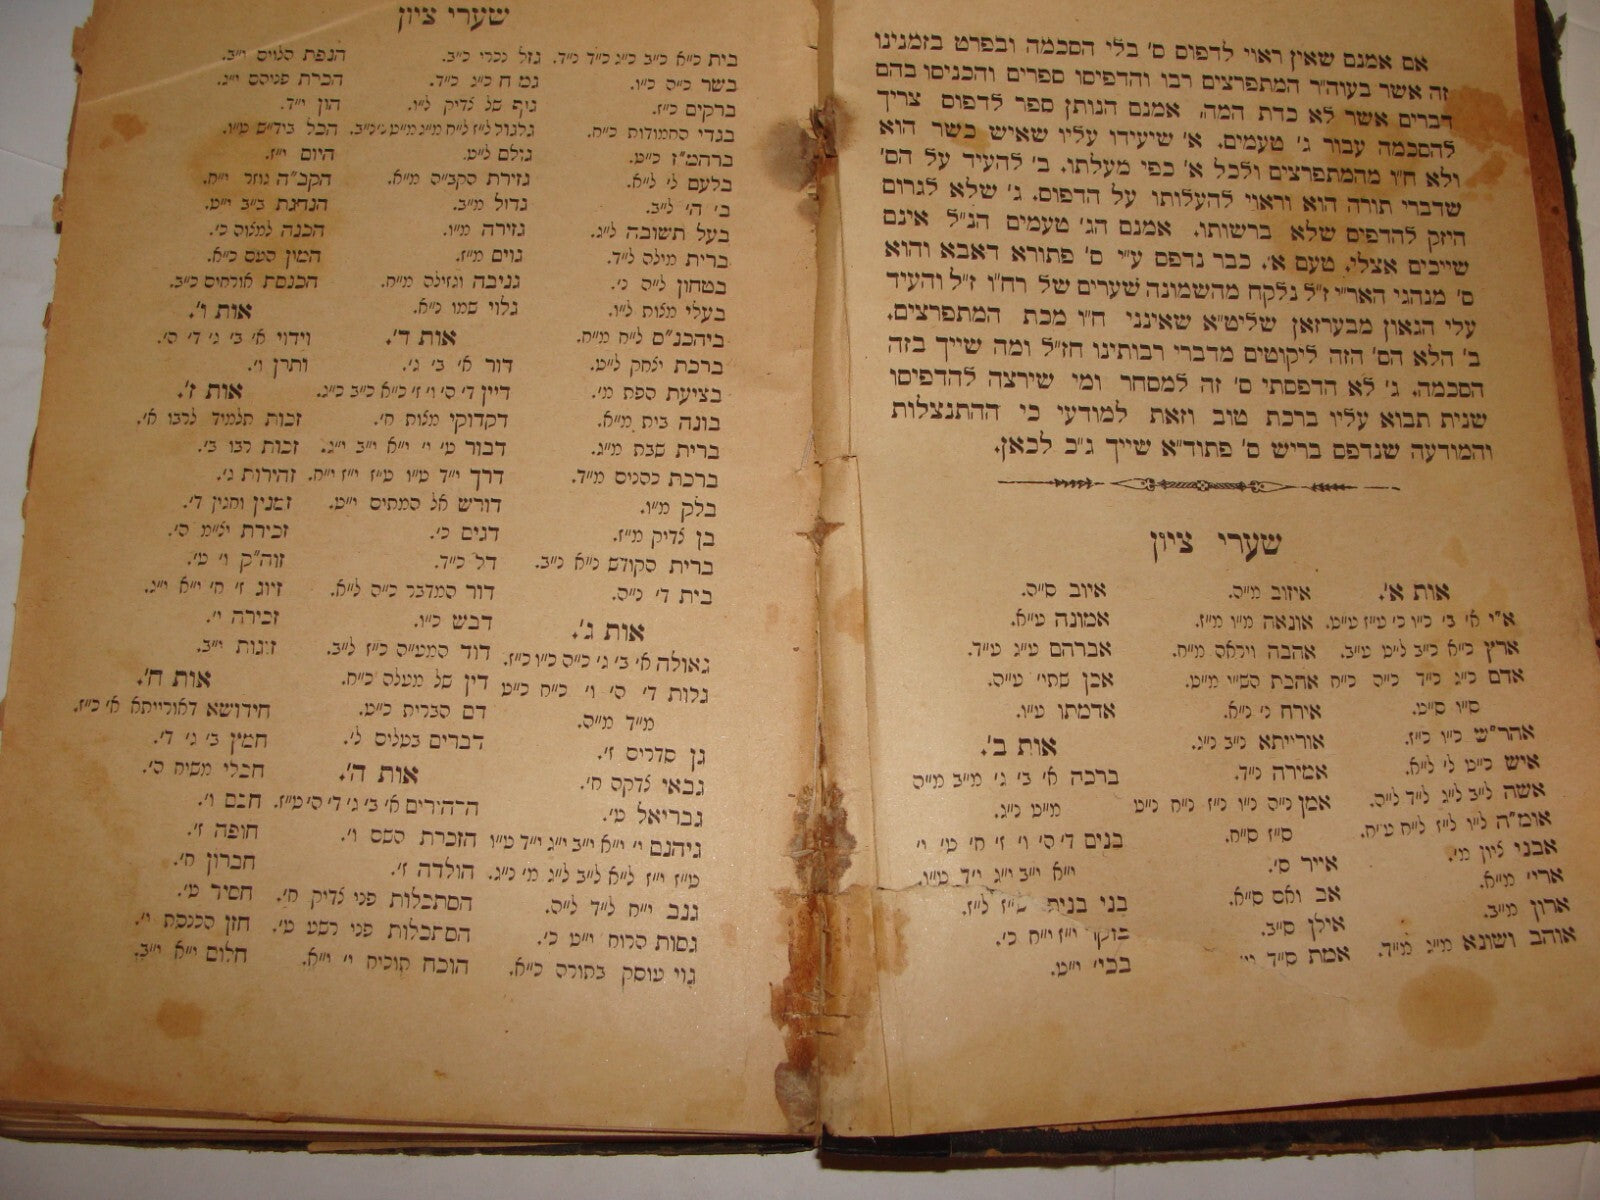 אם אמנם שאין ראוי לדפוס ס' בלי הסכמה ובפרט בזמנינו
זה אשר בעוה"ר המתפרצים רבו והדפיסו ספרים והכניסו בהם
דברים אשר לא כדת המה, אמנם הנותן ספר לדפוס צריך
להסכמה עבור ג' טעמים. א' שיעידו עליו שאיש כשר הוא
ולא ח"ו מהמתפרצים ולכל א' כפי מעלתו. ב' להעיד על הס'
שדברי תורה הוא וראוי להעלותו על הדפוס. ג' שלא לגרום
היזק להדפיס שלא ברשותו. אמנם הג' טעמים הנ"ל אינם
שייכים אצלי, טעם א'. כבר נדפס ע"י ס' פתורא דאבא והוא
ס' מנהגי האר"י ז"ל נלקח מהשמונה שערים של רח"ו ז"ל והעיד
עלי הגאון מבערזאן שליט"א שאינני ח"ו מכת המתפרצים.
ב' הלא הס' הזה ליקוטים מדברי רבותינו חז"ל ומה שייך בזה
הסכמה. ג' לא הדפסתי ס' זה למסחר ומי שירצה להדפיסו
שנית תבוא עליו ברכת טוב וזאת למודעי כי ההתנצלות
והמודעה שנדפס בריש ס' פתוד"א שייך ג"כ לכאן.
שערי ציון
אות א'.
א"י א' ב' כ"ו כ' ט"ז ע"ט.
ארץ כ"א כ"ב ל"ט ע"ב.
אדם כ"ג כ"ד כ"ה כ"ח
ס"ו ס"ט.
אהר"ש כ"ו כ"ז.
איש כ"ט ל' ל"א.
אשה ל"ב ל"ג ל"ד ל"ה.
אומ"ה ל"ו ל"ז ל"ח ע"ח.
אבני ציון מ'.
ארי' מ"א.
ארון מ"ב.
אוהב ושונא מ"ג מ"ד.
איזוב מ"ה.
אונאה מ"ו מ"ז.
אהבה ויראה מ"ח.
אהבת הש"י מ"ט.
אירח נ' נ"א.
אורייתא נ"ב נ"ג.
אמירה נ"ד.
אמן נ"ה נ"ו נ"ז נ"ח נ"ט
ס"ז ס"ח.
אייר ס'.
אב ואם ס"א.
אילן ס"ב.
אמת ס"ד
איוב ס"ה.
אמונה ע"א.
אברהם ע"ג ע"ד.
אבן שתי' ע"ה.
אדמתו ע"ו.
אות ב'.
ברכה א' ב' ג' מ"ב מ"ה
מ"ט נ"ג.
בנים ד' ה' ו' ז' ח' ט' י'
י"א י"ב י"ג י"ד ט"ו.
בני בנים ט"ז ל"ז.
בוקר י"ז י"ח כ'.
בכי' י"ט.
שערי ציון
בית כ"א כ"ב כ"ג כ"ד נ"ד.
בשר כ"ה כ"ו.
ברקים כ"ז.
בגדי החמודות כ"ח.
ברהמ"ז כ"ט.
בלעם ל' ל"א.
ב' ה' ל"ב.
בעל תשובה ל"ג.
ברית מילה ל"ד.
בטחון ל"ה נ'.
בעלי מצות ל"ו.
ביהכנ"ס ל"ח מ"ח.
ברכת יצחק ל"ט.
בציעת הפת מ'.
בונה בית מ"א.
ברית שבת מ"ג.
ברכת כהנים מ"ד.
בלק מ"ו.
בן צדיק מ"ז.
ברית הקודש נ"א נ"ב.
בית ד' נ"ה.
אות ג'.
גאולה א' ב' ג' כ"ה כ"ו כ"ז.
גלות ד' ה' ו' כ"ח כ"ט
מ"ד מ"ה.
גן סדרים ז'.
גבאי צדקה ח'.
גבריאל ט'.
גיהנם י' י"א י"ב י"ג י"ד ט"ו
ט"ז י"ז ל"א ל"ב ל"ג מ' נ"ג.
גנב י"ח ל"ד ל"ה.
גסות הרוח י"ט כ'.
גוי עוסק בתורה כ"א.
גזל נכרי כ"ב.
גמ ח כ"ג כ"ד.
גוף של צדיק ל"ו.
גלגול ל"ז ל"ח מ"ג מ"ט נ' נ"ב.
גולם ל"ט.
גזירת הקב"ה מ"א.
גדול מ"ב.
גזירה מ"ו.
גוים מ"ז.
גניבה וגזילה מ"ח.
גלוי שמו נ"א.
אות ד'.
דור א' ב' ג'.
דיין ד' ה' ו' ז' כ"א כ"ב כ"ג.
דקדוקי מצות ח'.
דבור ט' י' י"א י"ב י"ג.
דרך י"ד ט"ו ט"ז י"ז י"ח.
דורש אל המתים י"ט.
דגים כ'.
דל כ"ד.
דור המדבר כ"ה ל"א.
דבש כ"ו.
דוד המע"ה כ"ז ל"ב.
דין של מעלה כ"ח.
דם הברית כ"ט.
דברים בטלים ל'.
אות ה'.
הרהורים א' ב' ג' ד' ה' ט"ז.
הזכרת השם ו'.
הולדה ז'.
הסתכלות פני צדיק ח'.
הסתכלות פני רשע ט'.
הוכח תוכיח י' י"א.
הנפת הלוים י"ב.
הכרת פניהם י"ג.
הון י"ד.
הכל ביד"ש ט"ו.
היום י"ז.
הקב"ה גוזר י"ח.
הנהגת ב"ב י"ט.
הכנה למצוה כ'.
המון העם כ"א.
הכנסת אורחים כ"ב.
אות ו'.
וידוי א' ב' ג' ד' ה'.
ותרן ו'.
אות ז'.
זכות תלמיד לרבו א'.
זכות רבו ב'.
זהירות ג'.
זמנין וחגין ד'.
זכירת יצ"מ ה'.
זוה"ק ו' ט'.
זיוג ז' ח' י"א י"ג.
זכירה י'.
זנות י"ב.
אות ח'.
חידושא דאורייתא א' כ"ז.
חמץ ב' ג' ד'.
חבלי משיח ה'.
חכם ו'.
חופה ז'.
חברון ח'.
חסיד ט'.
חזן הכנסת י'.
חלום י"א י"ב.